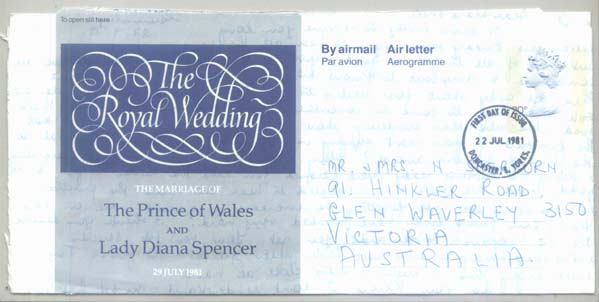 To open slit here
The
Royal Wedding
THE MARRIAGE OF
The Prince of Wales
AND
Lady Diana Spencer
29 JULY 1981
By airmail Air letter
Par avion Aerogramme
FIRST DAY OF ISSUE
22 JUL 1981
DONCASTER, S. YORKS.
MR. & MRS. N
91, HINKLER ROAD,
GLEN WAVERLEY 3150
VICTORIA
AUSTRALIA.